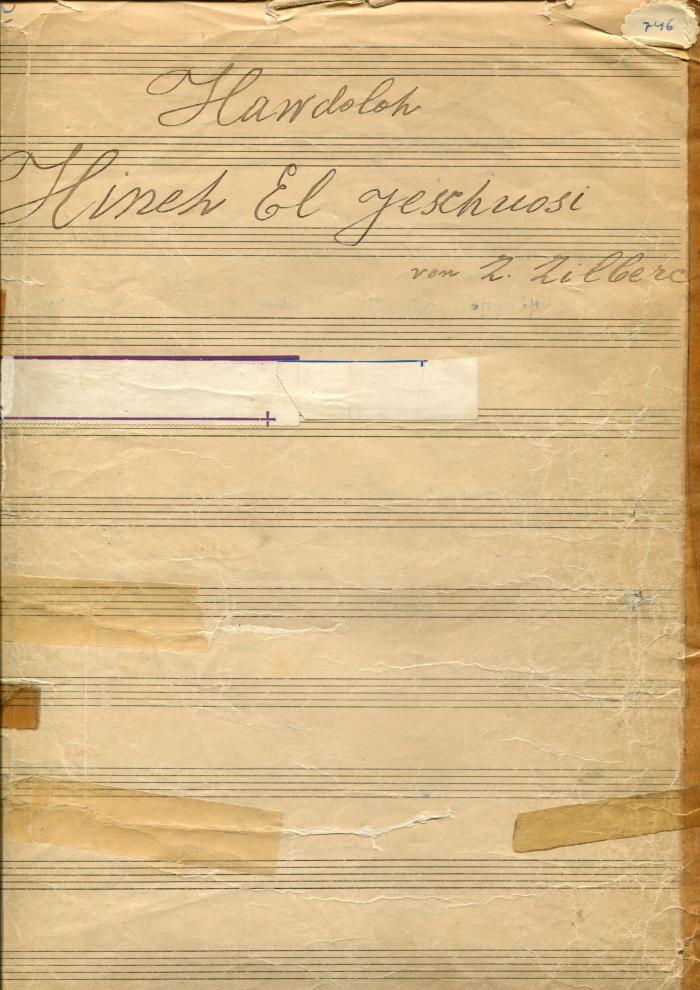 746
Hawdoloh
Hineh El jeschuosi
von Z. Zilberc